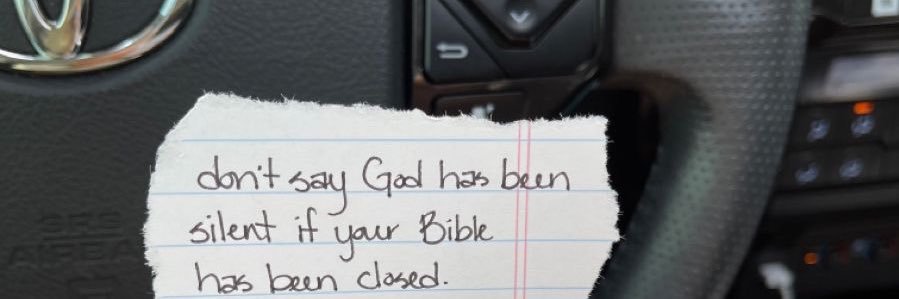 don't say God has been
silent if your Bible
has been closed.